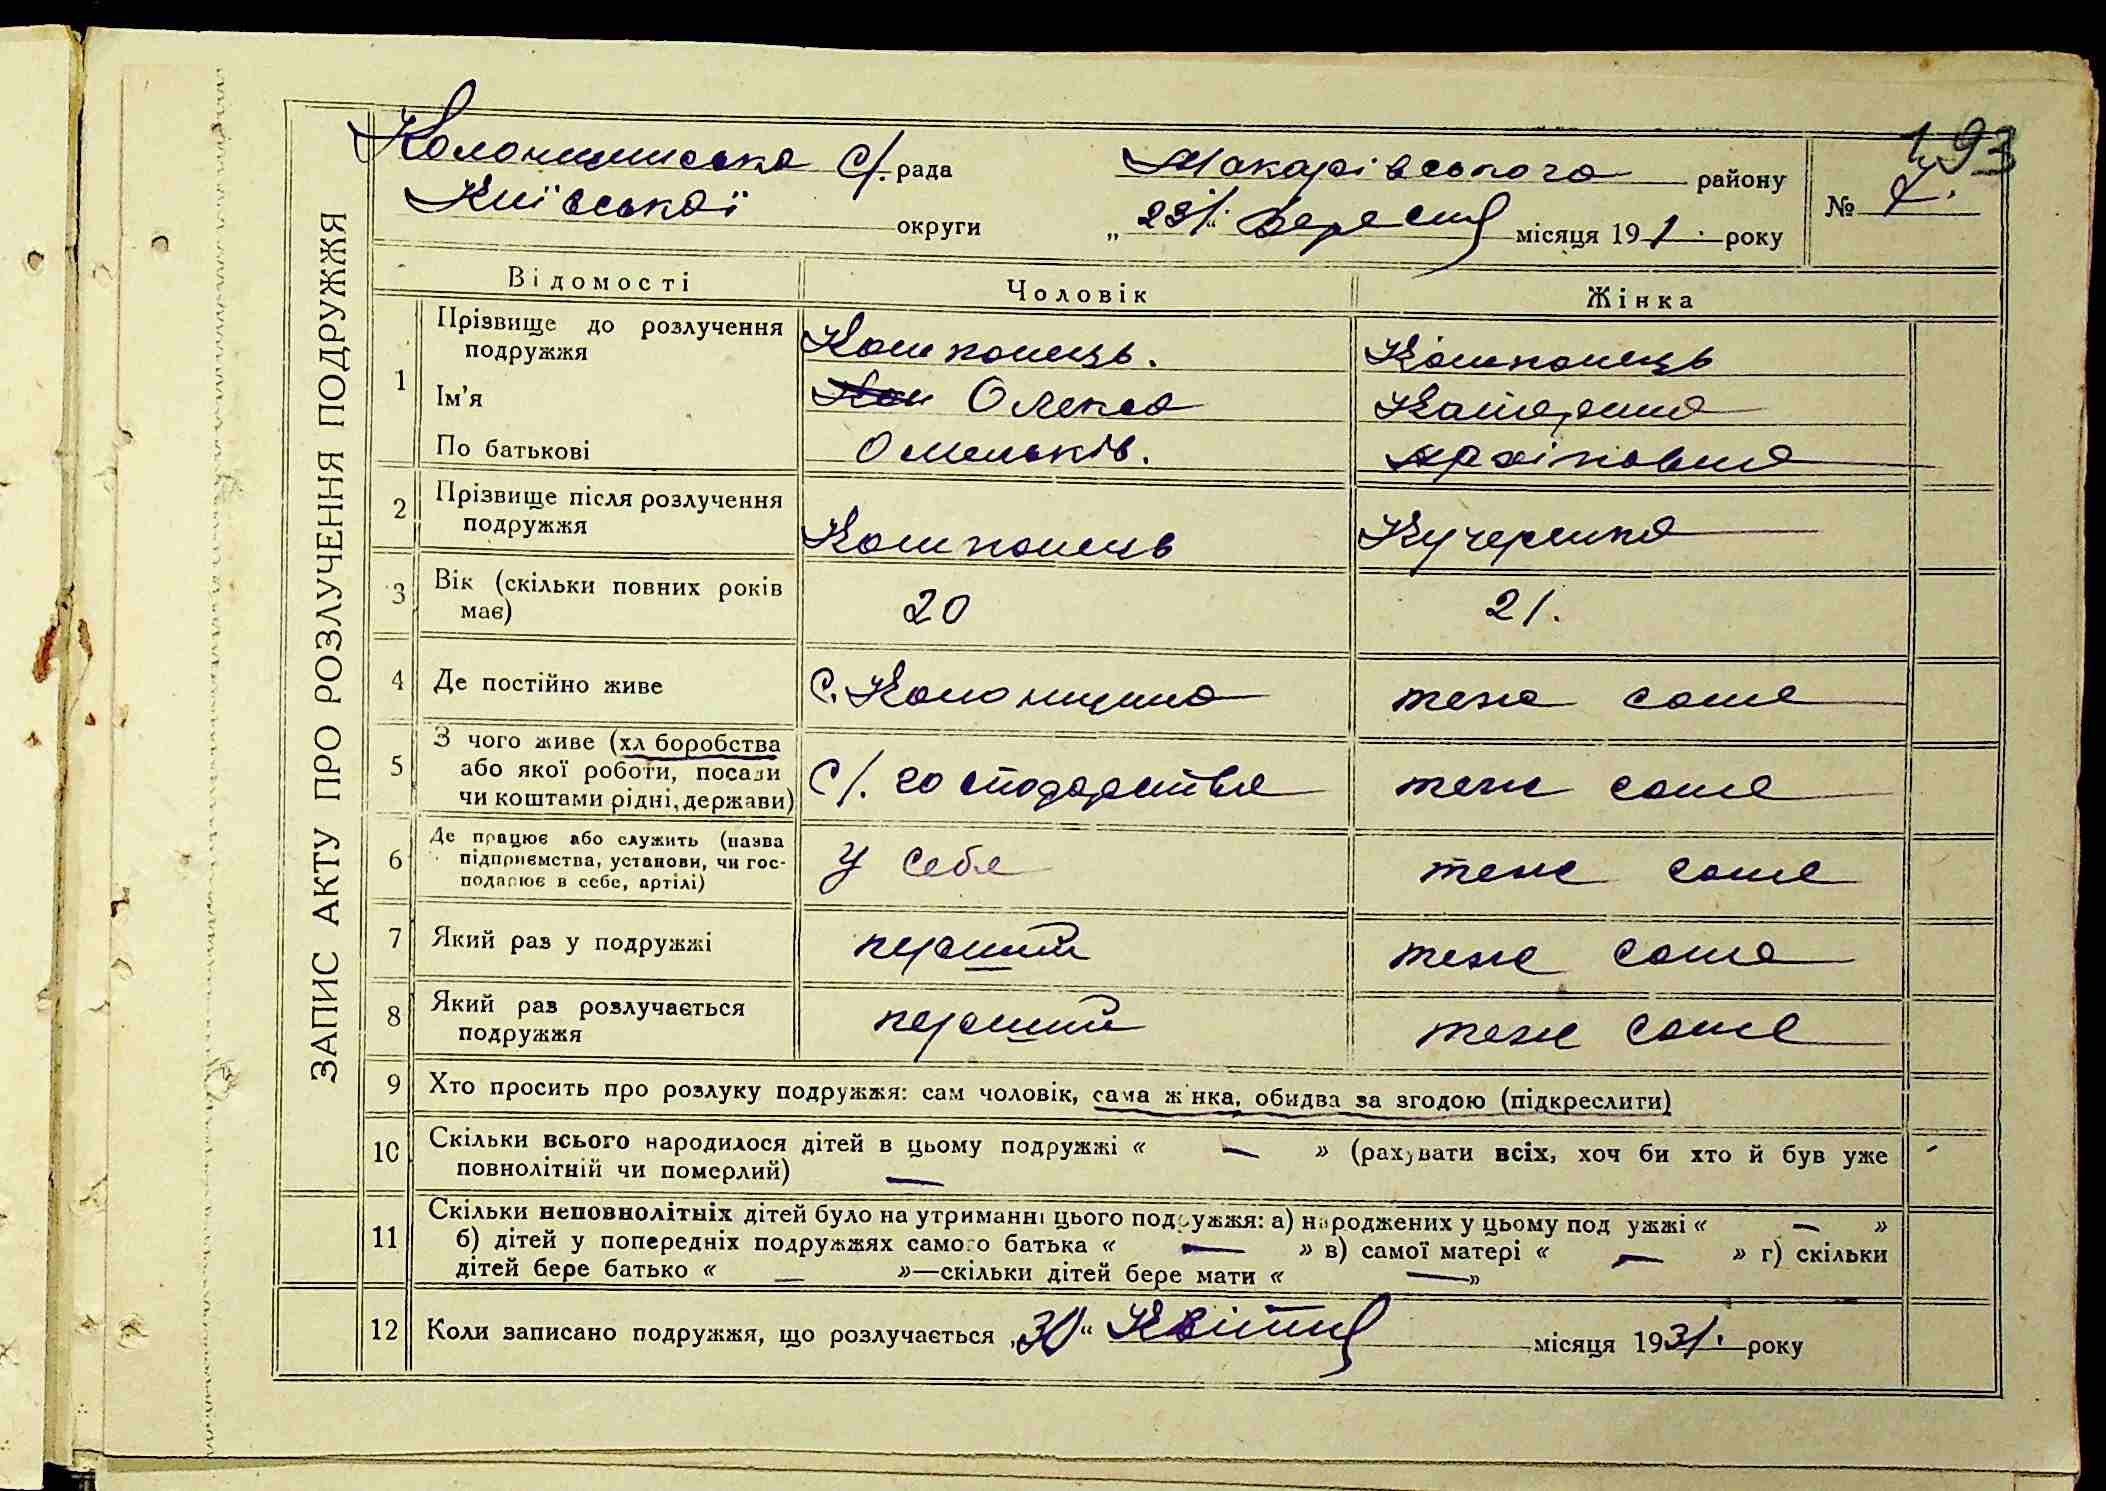 193
Колонщинська с/. рада Макарівського району № 7.
Київської округи „23/“ Березня місяця 191. року
ЗАПИС АКТУ ПРО РОЗЛУЧЕННЯ ПОДРУЖЖЯ
Відомості Чоловік Жінка
1 Прізвище до розлучення подружжя Компонець. Компонець
Ім’я Олекса Катерина
По батькові Омельків. Архіповна
2 Прізвище після розлучення подружжя Компонець Кучеренко
3 Вік (скільки повних років має) 20 21.
4 Де постійно живе С. Колонщина теж саме
5 З чого живе (хл боробства або якої роботи, посади чи коштами рідні, держави) С/. господарства теж саме
6 Де працює або служить (назва підприємства, установи, чи господарює в себе, артілі) У себе теж саме
7 Який раз у подружжі перший теж саме
8 Який раз розлучається подружжя перший теж саме
9 Хто просить про розлуку подружжя: сам чоловік, сама ж нка, обидва за згодою (підкреслити)
10 Скільки всього народилося дітей в цьому подружжі « — » (рахувати всіх, хоч би хто й був уже
повнолітній чи померлий) —
11 Скільки неповнолітніх дітей було на утриманні цього подружжя: а) народжених у цьому под ужжі « — »
б) дітей у попередніх подружжях самого батька « — » в) самої матері « — » г) скільки
дітей бере батько « — »—скільки дітей бере мати « — »
12 Коли записано подружжя, що розлучається „30“ Квітня місяця 1931. року